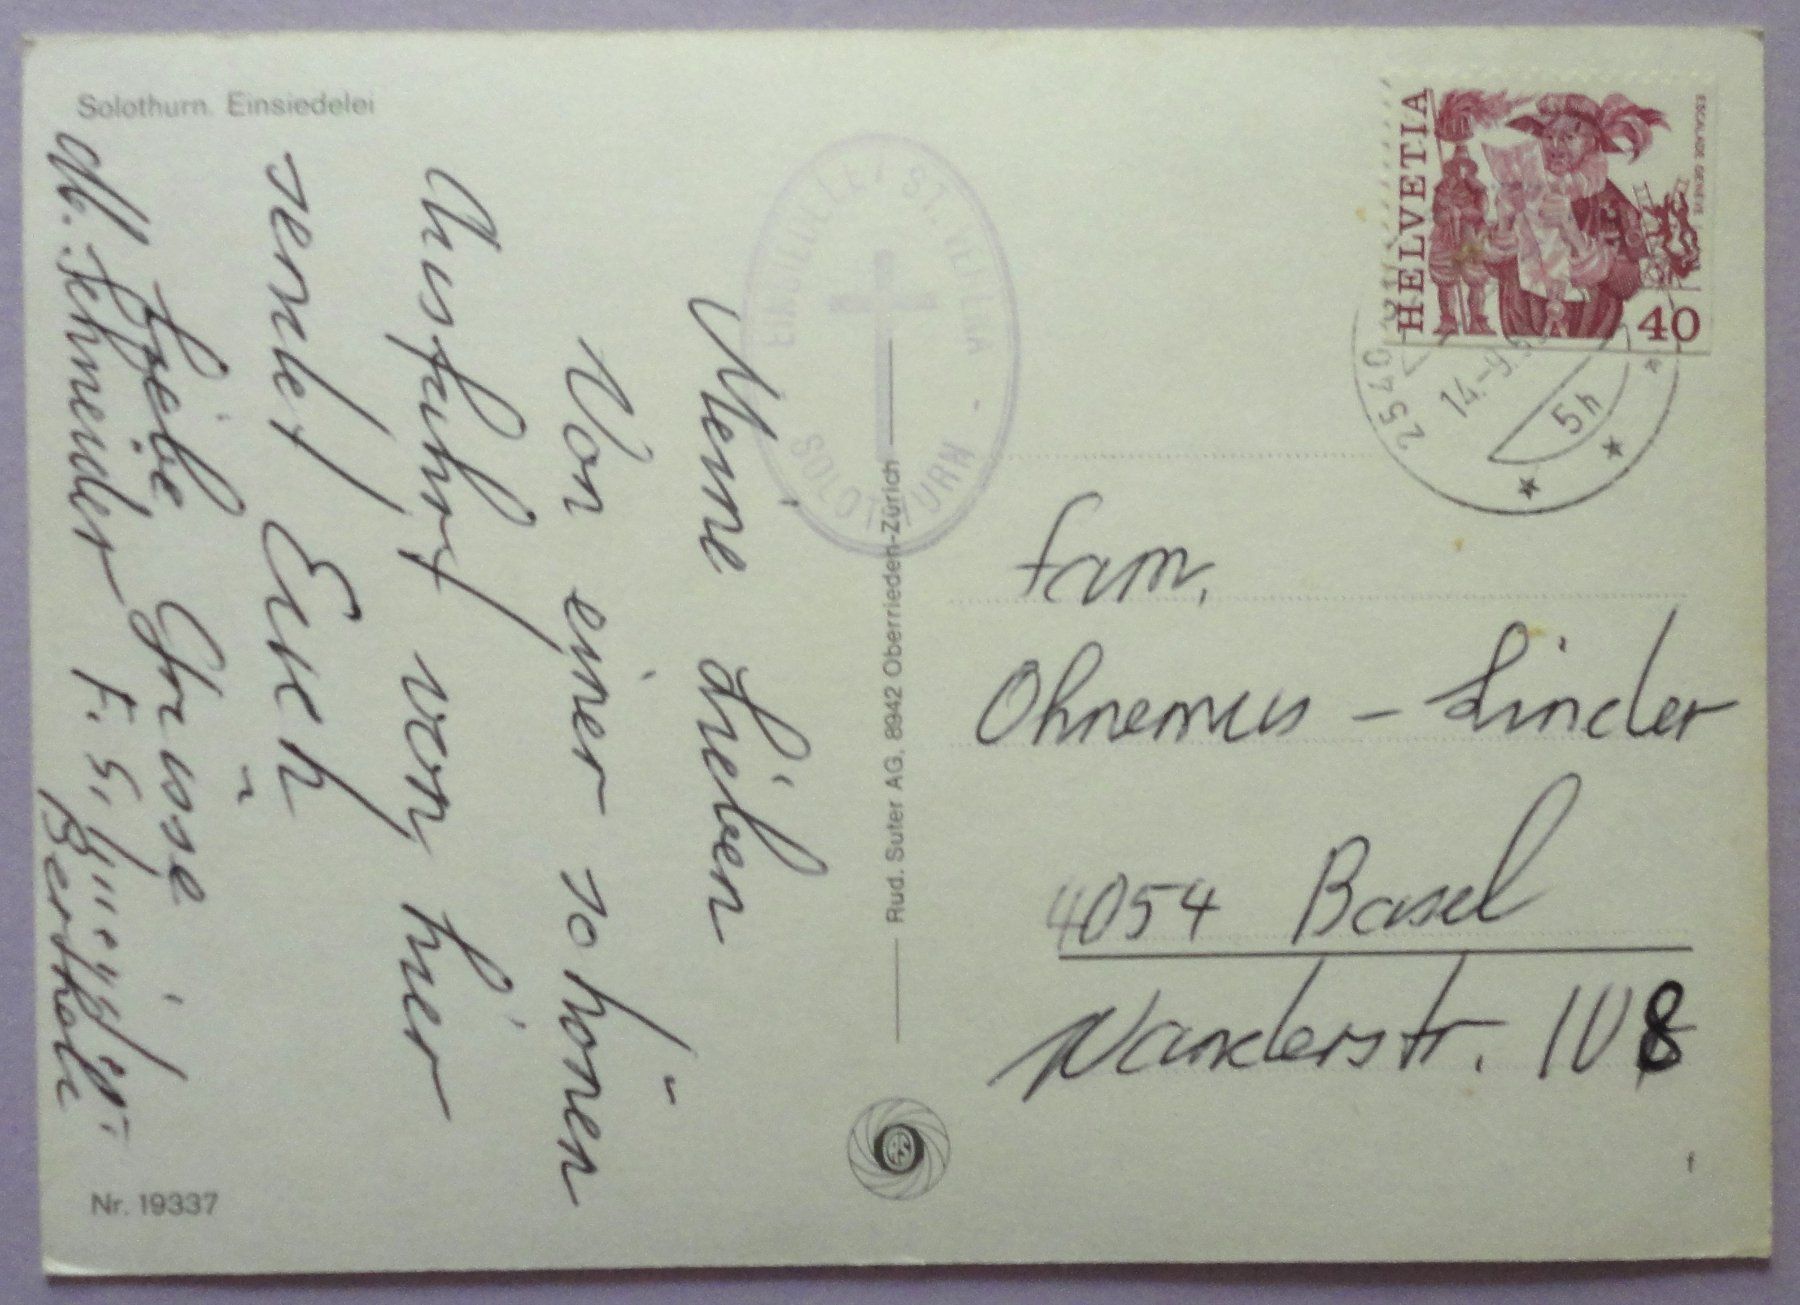 Solothurn. Einsiedelei
Meine Lieben
Von einer schönen
Ausfahrt von hier
sendet Euch
liebe Grüsse
M. Schneider F. S.
Berthold
Nr. 19337
EINSIEDELEI ST. VERENA -
SOLOTHURN
Rud. Suter AG, 8942 Oberrieden-Zürich
HELVETIA
ESCALADE GENEVE
40
2540
14.-9.
5h
Fam.
Ohnemus - Linder
4054 Basel
Wanderstr. 108
f